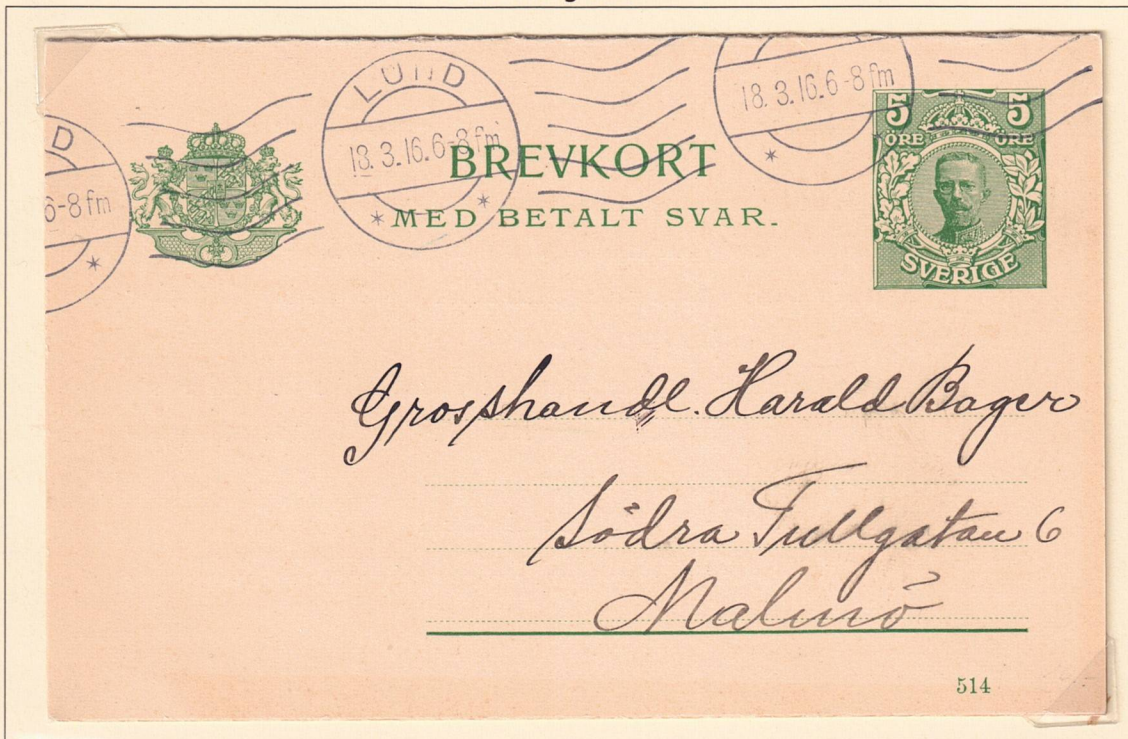 LUND
18.3.16.6-8 fm
18.3.16.6-8 fm
D
6-8 fm
BREVKORT
MED BETALT SVAR.
5 5
ÖRE ÖRE
SVERIGE
Grosshandl. Harald Bager
Södra Tullgatan 6
Malmö
514